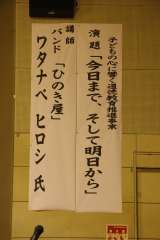 子どもの心に響く道徳教育推進事業
演題「今日まで、そして明日から」
講師
バンド「ひのき屋」
ワタナベ ヒロシ 氏